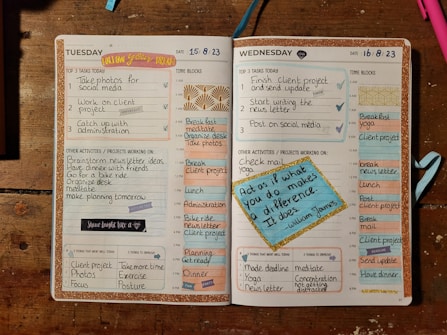 TUESDAY
DATE 15-8-23
TOP 3 TASKS TODAY
1 Take photos for
social media
2 Work on client
project
3 Catch up with
administration
OTHER ACTIVITIES / PROJECTS WORKING ON:
Brainstorm newsletter ideas
Have dinner with friends
Go for a bike ride
Organise desk
meditate
make planning tomorrow
Shine bright like a
Client project
Photos
Focus
Take more time
Exercise
Posture
TIME BLOCKS
Breakfast
meditate
Organise desk
Take photos
Break
Client project
Lunch
Administration
Bike ride
newsletter
Client project
Planning
Get ready
Dinner
WEDNESDAY
DATE 16-8-23
TOP 3 TASKS TODAY
1 Finish client project
and send update
2 Start writing the
newsletter
3 Post on social media
OTHER ACTIVITIES / PROJECTS WORKING ON:
Check mail
Yoga
Act as if what
you do makes
a difference.
It does.
- William James
made deadline
Yoga
Newsletter
meditate
Concentration
not getting
distracted
TIME BLOCKS
Breakfast
yoga
Client project
break
newsletter
Lunch
Post
Break
mail
Client project
Send update
Have dinner